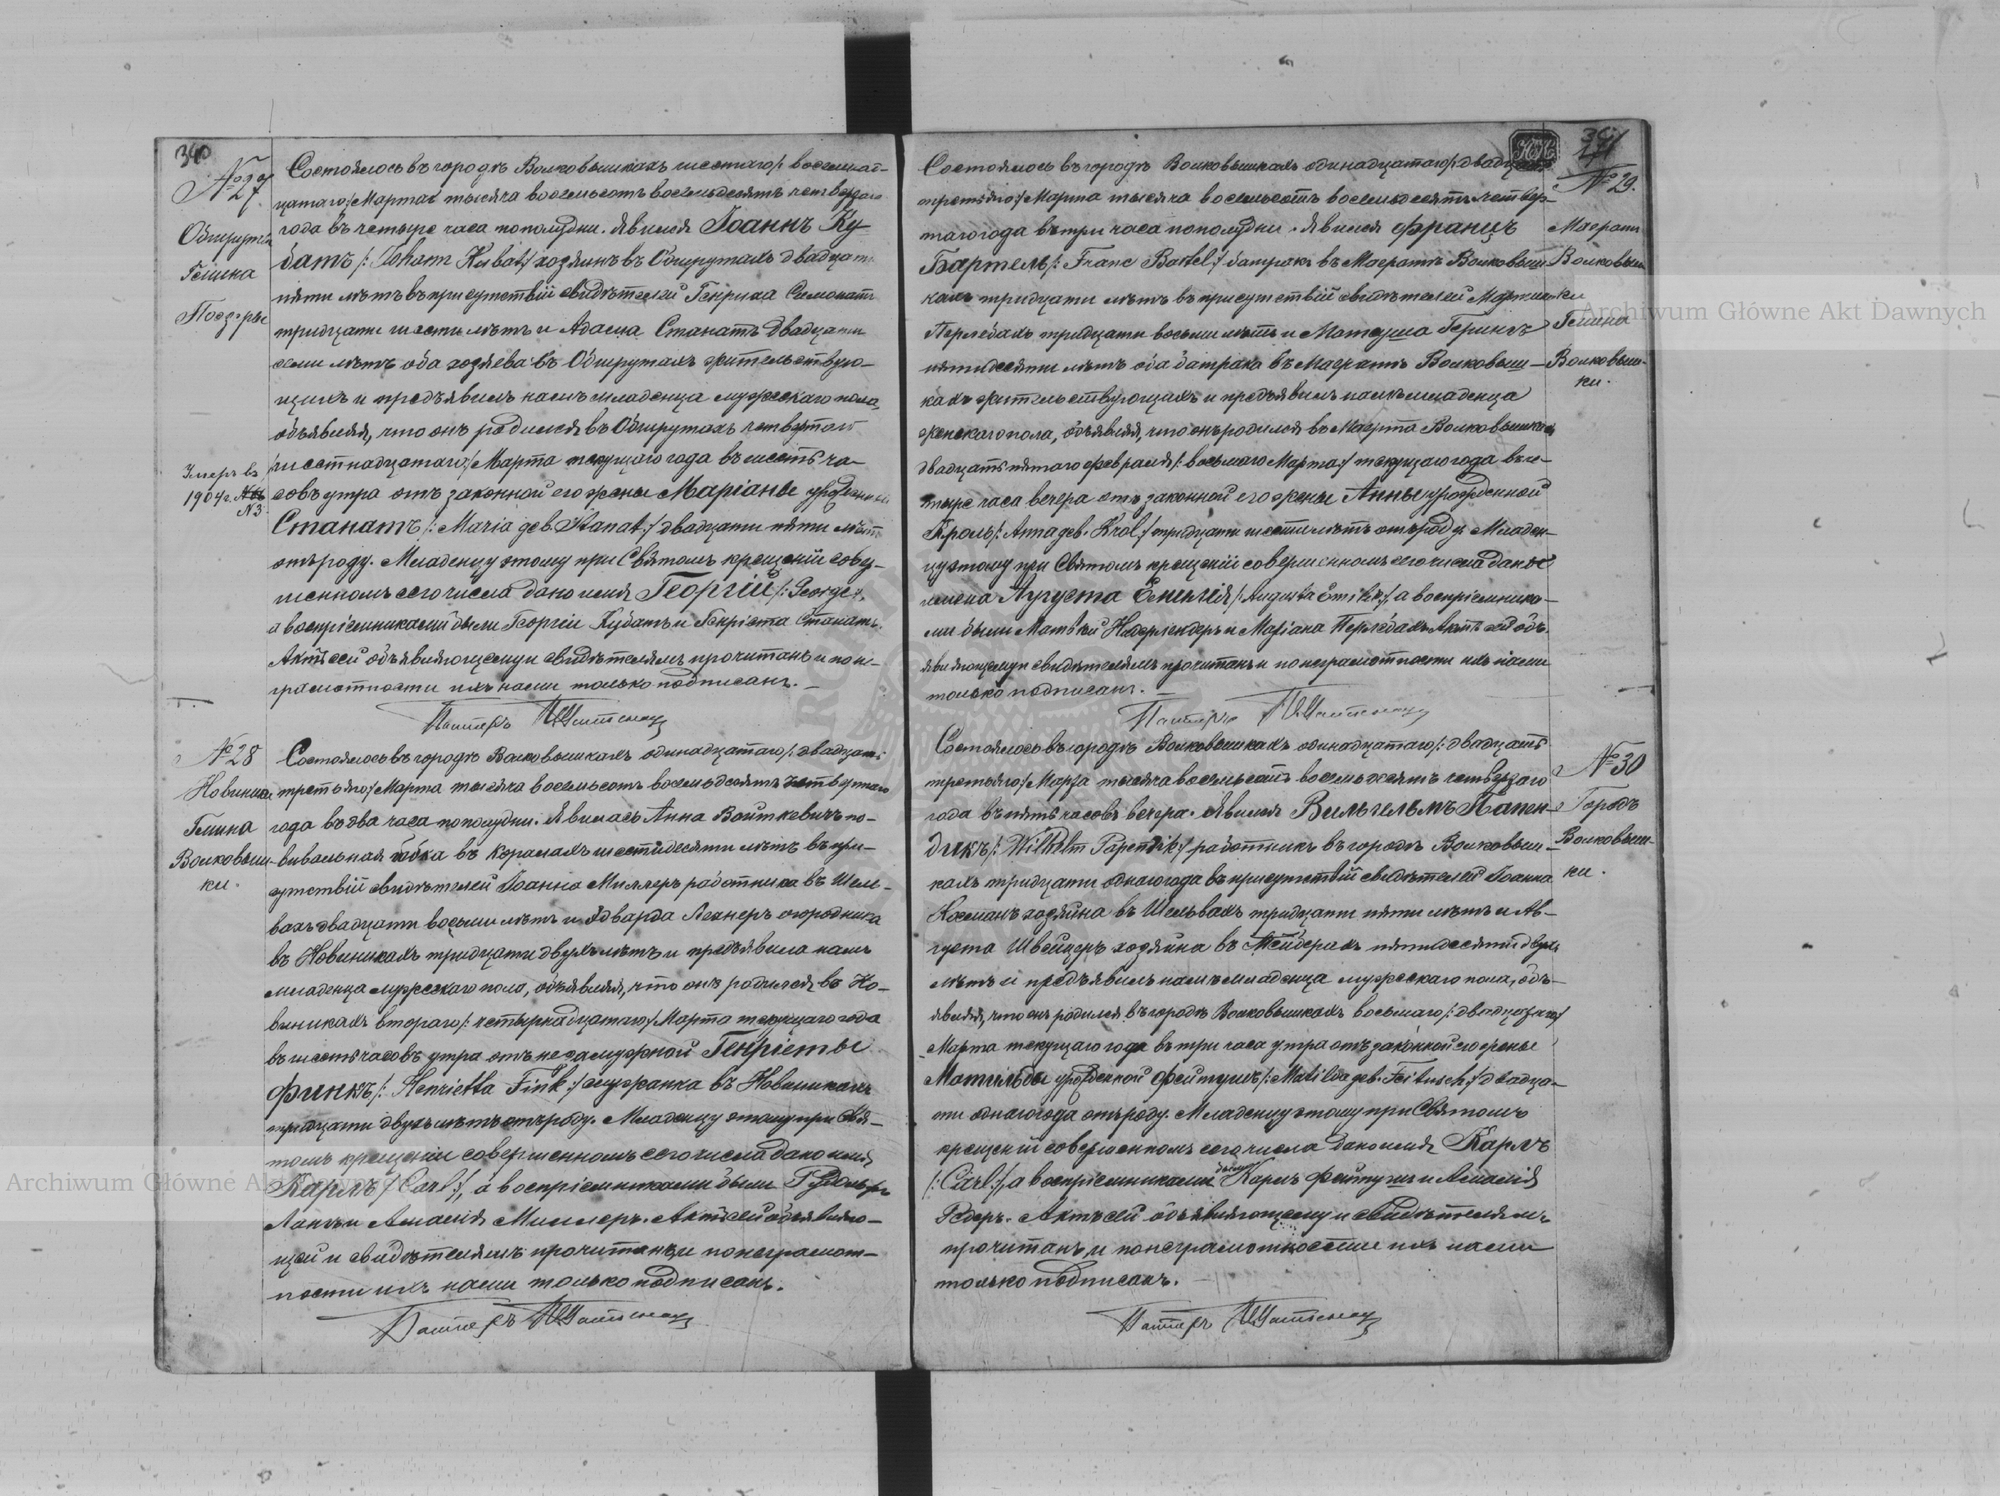 340
№ 27.
Обшруты
Гмина
Поезеры
Умеръ въ
1904 г. №
№3
Состоялось въ городѣ Волковышкахъ шестаго /: восемнад-
цатаго :/ Марта тысяча восемьсотъ восемьдесятъ четвертаго
года въ четыре часа пополудни. Явился Іоаннъ Ку-
батъ /: Johann Kubat :/ хозяинъ въ Обшрутахъ двадцати
пяти лѣтъ въ присутствіи свидѣтелей Генриха Симонатъ
тридцати шести лѣтъ и Адама Станатъ двадцати
семи лѣтъ оба хозяева въ Обшрутахъ жительствую-
щихъ и предъявилъ намъ младенца мужескаго пола,
объявляя, что онъ родился въ Обшрутахъ четвертаго
/: шестнадцатаго :/ Марта текущаго года въ шесть ча-
совъ утра отъ законной его жены Маріанны урожденной
Станатъ /: Maria geb. Stanat :/ двадцати пяти лѣтъ
отъ роду. Младенцу этому при Святомъ крещеніи совер-
шенномъ сего числа дано имя Георгій /: George :/,
а воспріемниками были Георгій Кубатъ и Генріета Станатъ.
Актъ сей объявляющему и свидѣтелямъ прочитанъ и по не-
грамотности ихъ нами только подписанъ. —
Пасторъ
№ 28
Новиники
Гмина
Волковыш-
ки.
Состоялось въ городѣ Волковышкахъ одинадцатаго /: двадцать
третьяго :/ Марта тысяча восемьсотъ восемьдесятъ четвертаго
года въ два часа пополудни. Явилась Анна Войткевичъ по-
вивальная бабка въ Кермахъ шестидесяти лѣтъ въ при-
сутствіи свидѣтелей Іоанна Миллеръ работника въ Шель-
вахъ двадцати восьми лѣтъ и Эдварда Лехнеръ огородника
въ Новиникахъ тридцати двухъ лѣтъ и предъявила намъ
младенца мужескаго пола, объявляя, что онъ родился въ Но-
виникахъ втораго /: четырнадцатаго :/ Марта текущаго года
въ шесть часовъ утра отъ незамужной Генріеты
Финкъ /: Henrietta Fink :/ служанка въ Новиникахъ
тридцати двухъ лѣтъ отъ роду. Младенцу этому при Свя-
томъ крещеніи совершенномъ сего числа дано имя
Карлъ /: Carl :/, а воспріемниками были
и Амалія Миллеръ. Актъ сей объявляю-
щей и свидѣтелямъ прочитанъ и по неграмот-
ности ихъ нами только подписанъ.
Пасторъ
№ 29.
Маератъ
Волковыш-
ки
Гмина
Волковыш-
ки.
Состоялось въ городѣ Волковышкахъ одинадцатаго /: двадцать
третьяго :/ Марта тысяча восемьсотъ восемьдесятъ четвер-
таго года въ три часа пополудни. Явился Францъ
Бартель /: Franc Bartel :/ батракъ въ Маератѣ Волковыш-
кахъ тридцати лѣтъ въ присутствіи свидѣтелей
тридцати восьми лѣтъ и Матеуша Герингъ
пятидесяти лѣтъ оба батрака въ Маератѣ Волковыш-
кахъ жительствующихъ и предъявилъ намъ младенца
женскаго пола, объявляя, что онъ родился въ Маератѣ Волковышкахъ
двадцать пятаго Февраля /: восьмаго Марта :/ текущаго года въ че-
тыре часа вечера отъ законной его жены Анны урожденной
Кроль /: Anna geb. Krol :/ тридцати шести лѣтъ отъ роду. Младен-
цу этому при Святомъ крещеніи совершенномъ сего числа даны
имена Августа Емилія /: Augusta Emilie :/ а воспріемника-
ми были и Маріана Актъ сей объ-
являющему и свидѣтелямъ прочитанъ и по неграмотности ихъ нами
только подписанъ. —
Пасторъ
№ 30
Городъ
Волковыш-
ки.
Состоялось въ городѣ Волковышкахъ одинадцатаго /: двадцать
третьяго :/ Марта тысяча восемьсотъ восемьдесятъ четвертаго
года въ пять часовъ вечера. Явился Вильгельмъ Папен-
дикъ /: Wilhelm Papendik :/ работникъ въ городѣ Волковыш-
кахъ тридцати одного года въ присутствіи свидѣтелей Іоанна
хозяина въ Шельвахъ тридцати пяти лѣтъ и Ав-
густа Швейцеръ хозяина въ пятидесяти двухъ
лѣтъ и предъявилъ намъ младенца мужескаго пола, объ-
являя, что онъ родился въ городѣ Волковышкахъ восьмаго /: двадцатаго :/
Марта текущаго года въ три часа утра отъ законной его жены
Матильды урожденной Фейтушъ /: Matilda geb. Feitusch :/ двадца-
ти одного года отъ роду. Младенцу этому при Святомъ
крещеніи совершенномъ сего числа дано имя Карлъ
/: Carl :/, а воспріемниками были Карлъ Фейтушъ и Амалія
Редеръ. Актъ сей объявляющему и свидѣтелямъ
прочитанъ и по неграмотности ихъ нами
только подписанъ. —
Пасторъ
Archiwum Główne Akt Dawnych
Archiwum Główne Akt Dawnych